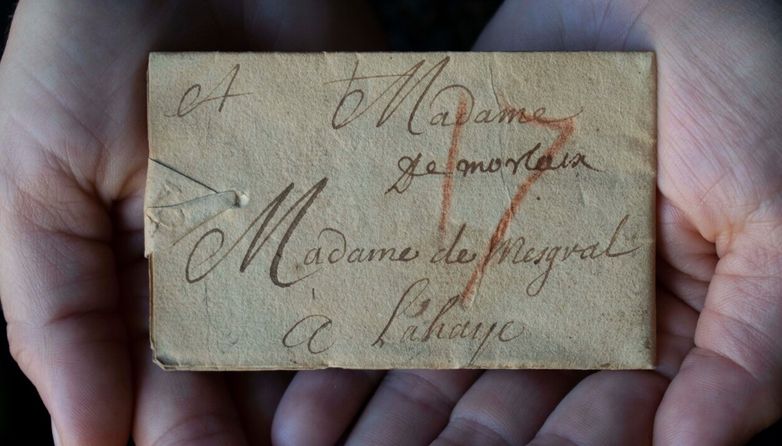 A Madame
De morlaix
Madame de Mesgral
à Lahaye
17